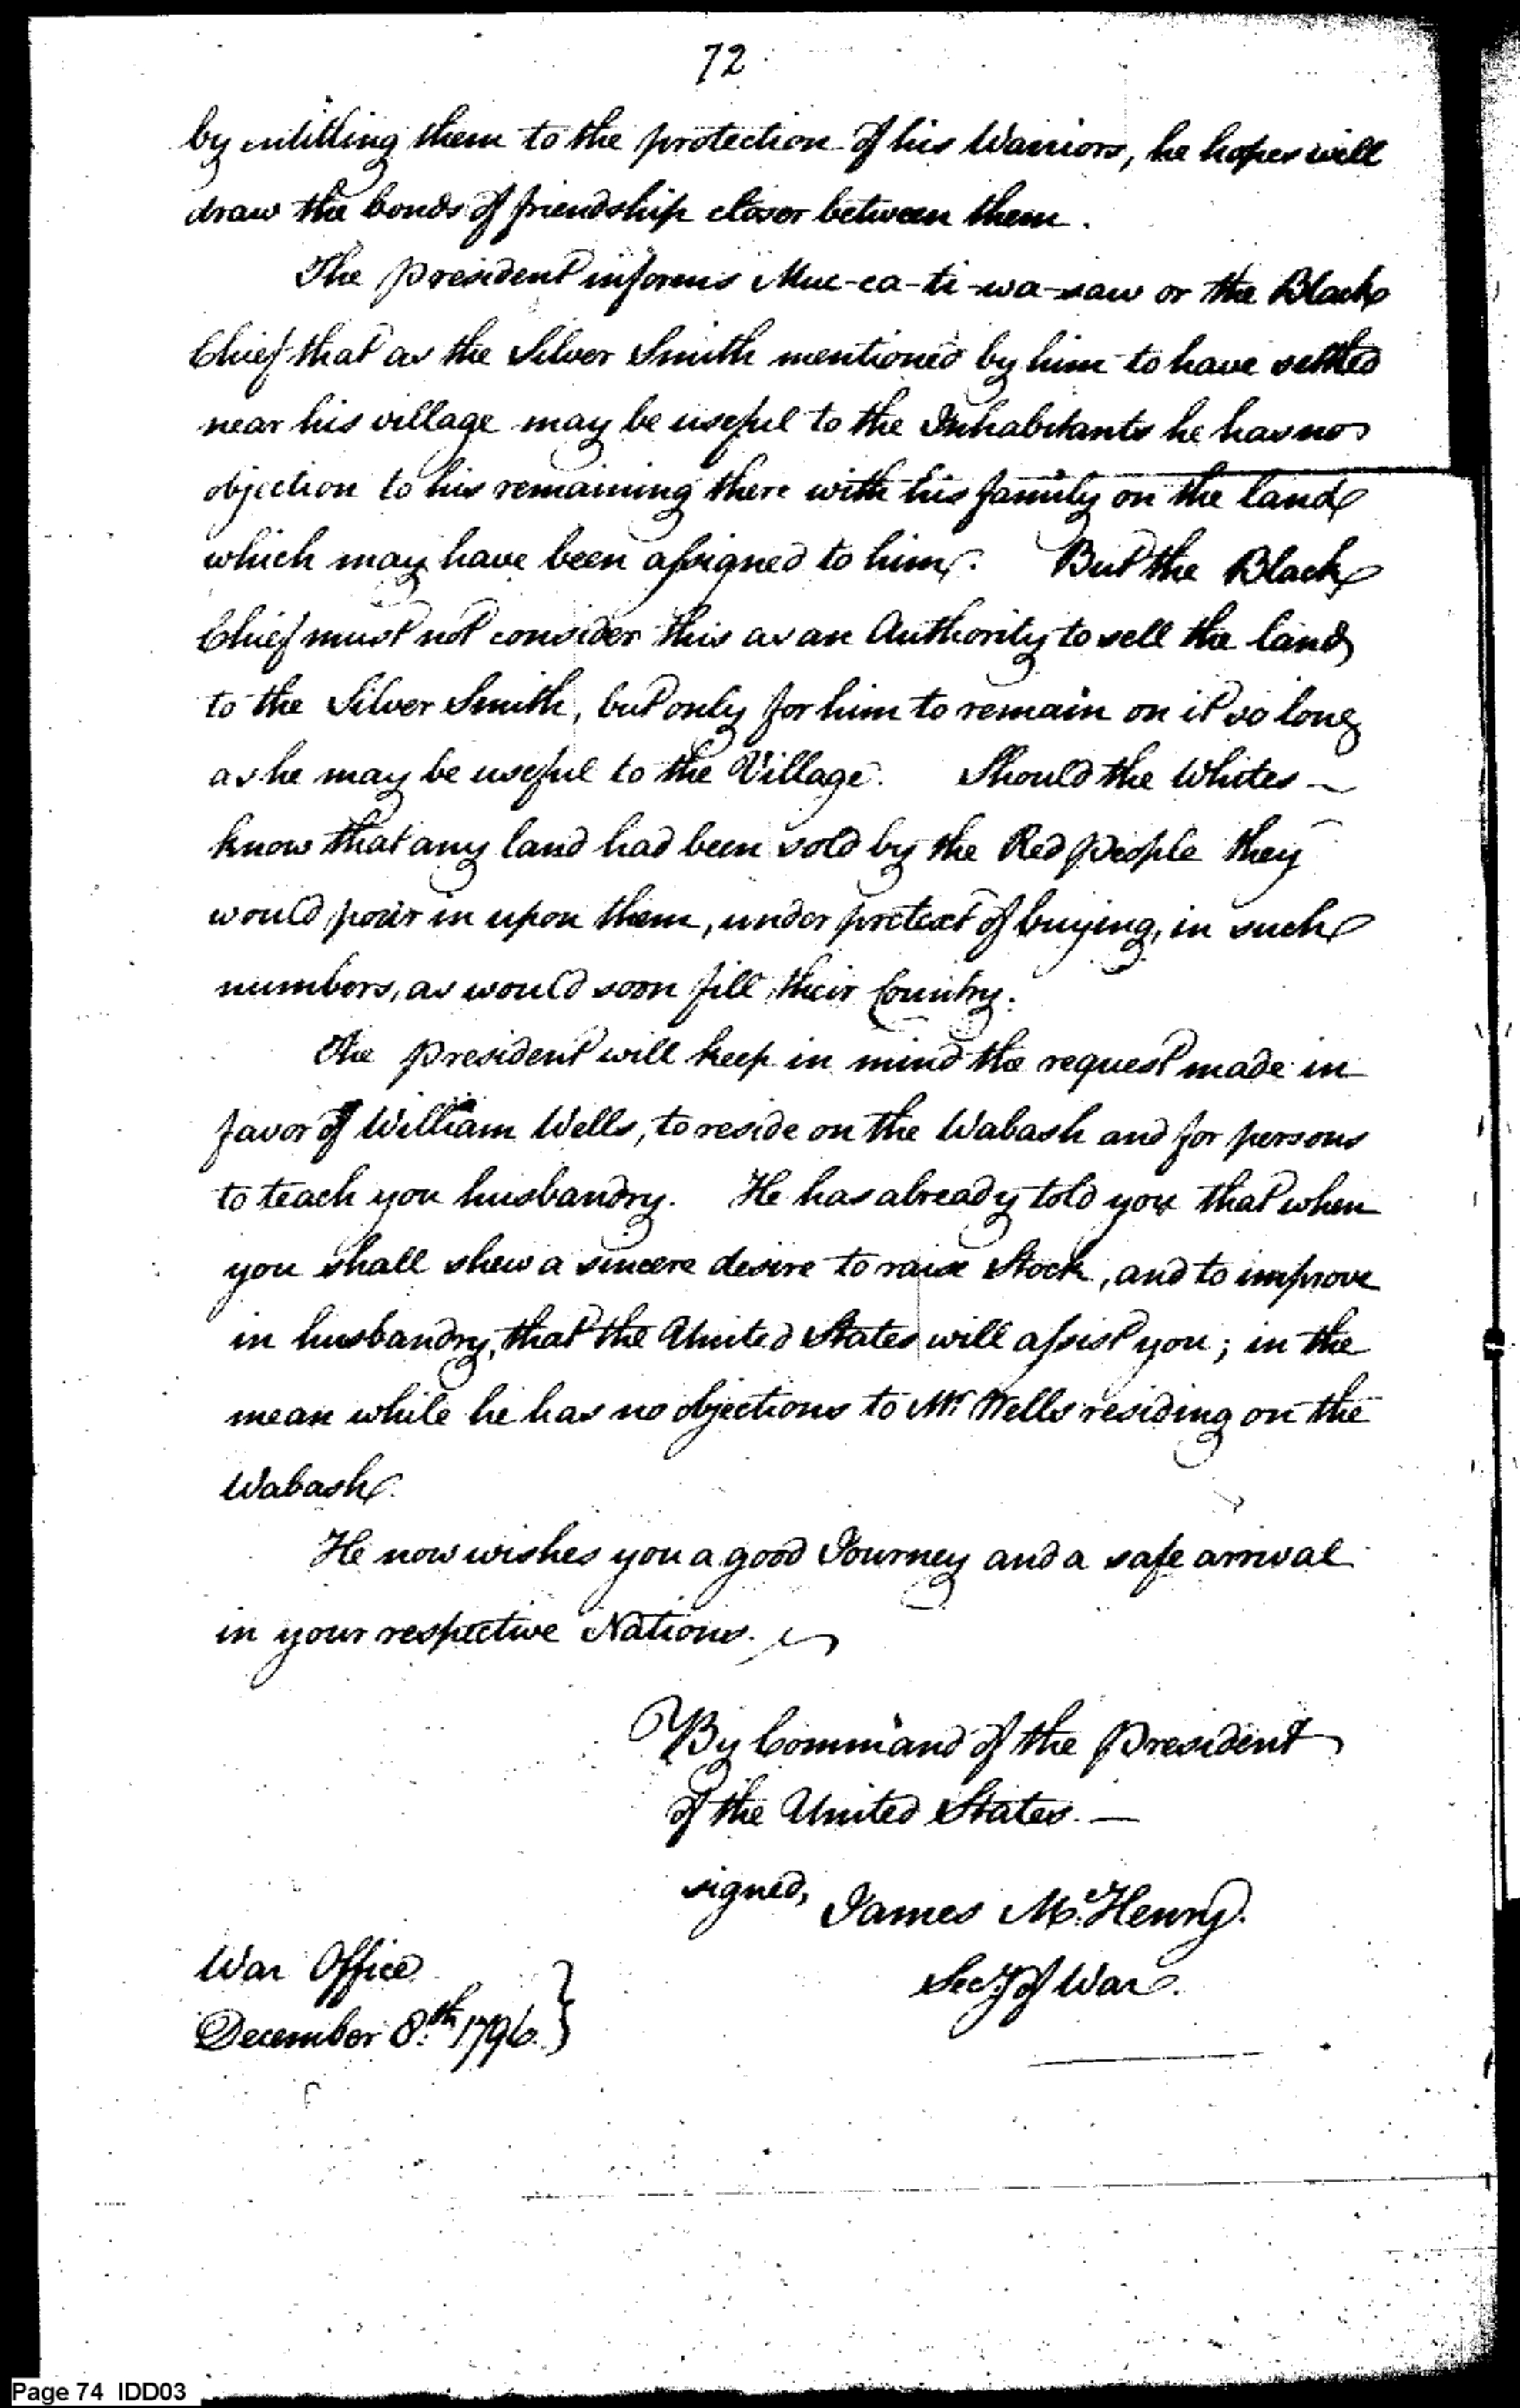 72
by entitling them to the protection of his Warriors, he hopes will
draw the bonds of friendship closer between them.
The president informs Muc-ca-ti-wa-saw or the Black
Chief that as the Silver Smith mentioned by him to have settled
near his village may be useful to the Inhabitants he has no
objection to his remaining there with his family on the land
which may have been assigned to him. But the Black
Chief must not consider this as an Authority to sell the land
to the Silver Smith, but only for him to remain on it so long
as he may be useful to the Village. Should the Whites ~
know that any land had been sold by the Red people they
would pour in upon them, under pretext of buying, in such
numbers, as would soon fill their Country.
The president will keep in mind the request made in
favor of William Wells, to reside on the Wabash and for persons
to teach you husbandry. He has already told you that when
you shall shew a sincere desire to raise Stock, and to improve
in husbandry, that the United States will assist you; in the
mean while he has no objections to Mr Wells residing on the
Wabash.
He now wishes you a good Journey and a safe arrival
in your respective Nations.
By Command of the President
of the United States. —
signed, James McHenry.
Secy of War.
War Office
December 8th 1796. }
Page 74 IDD03